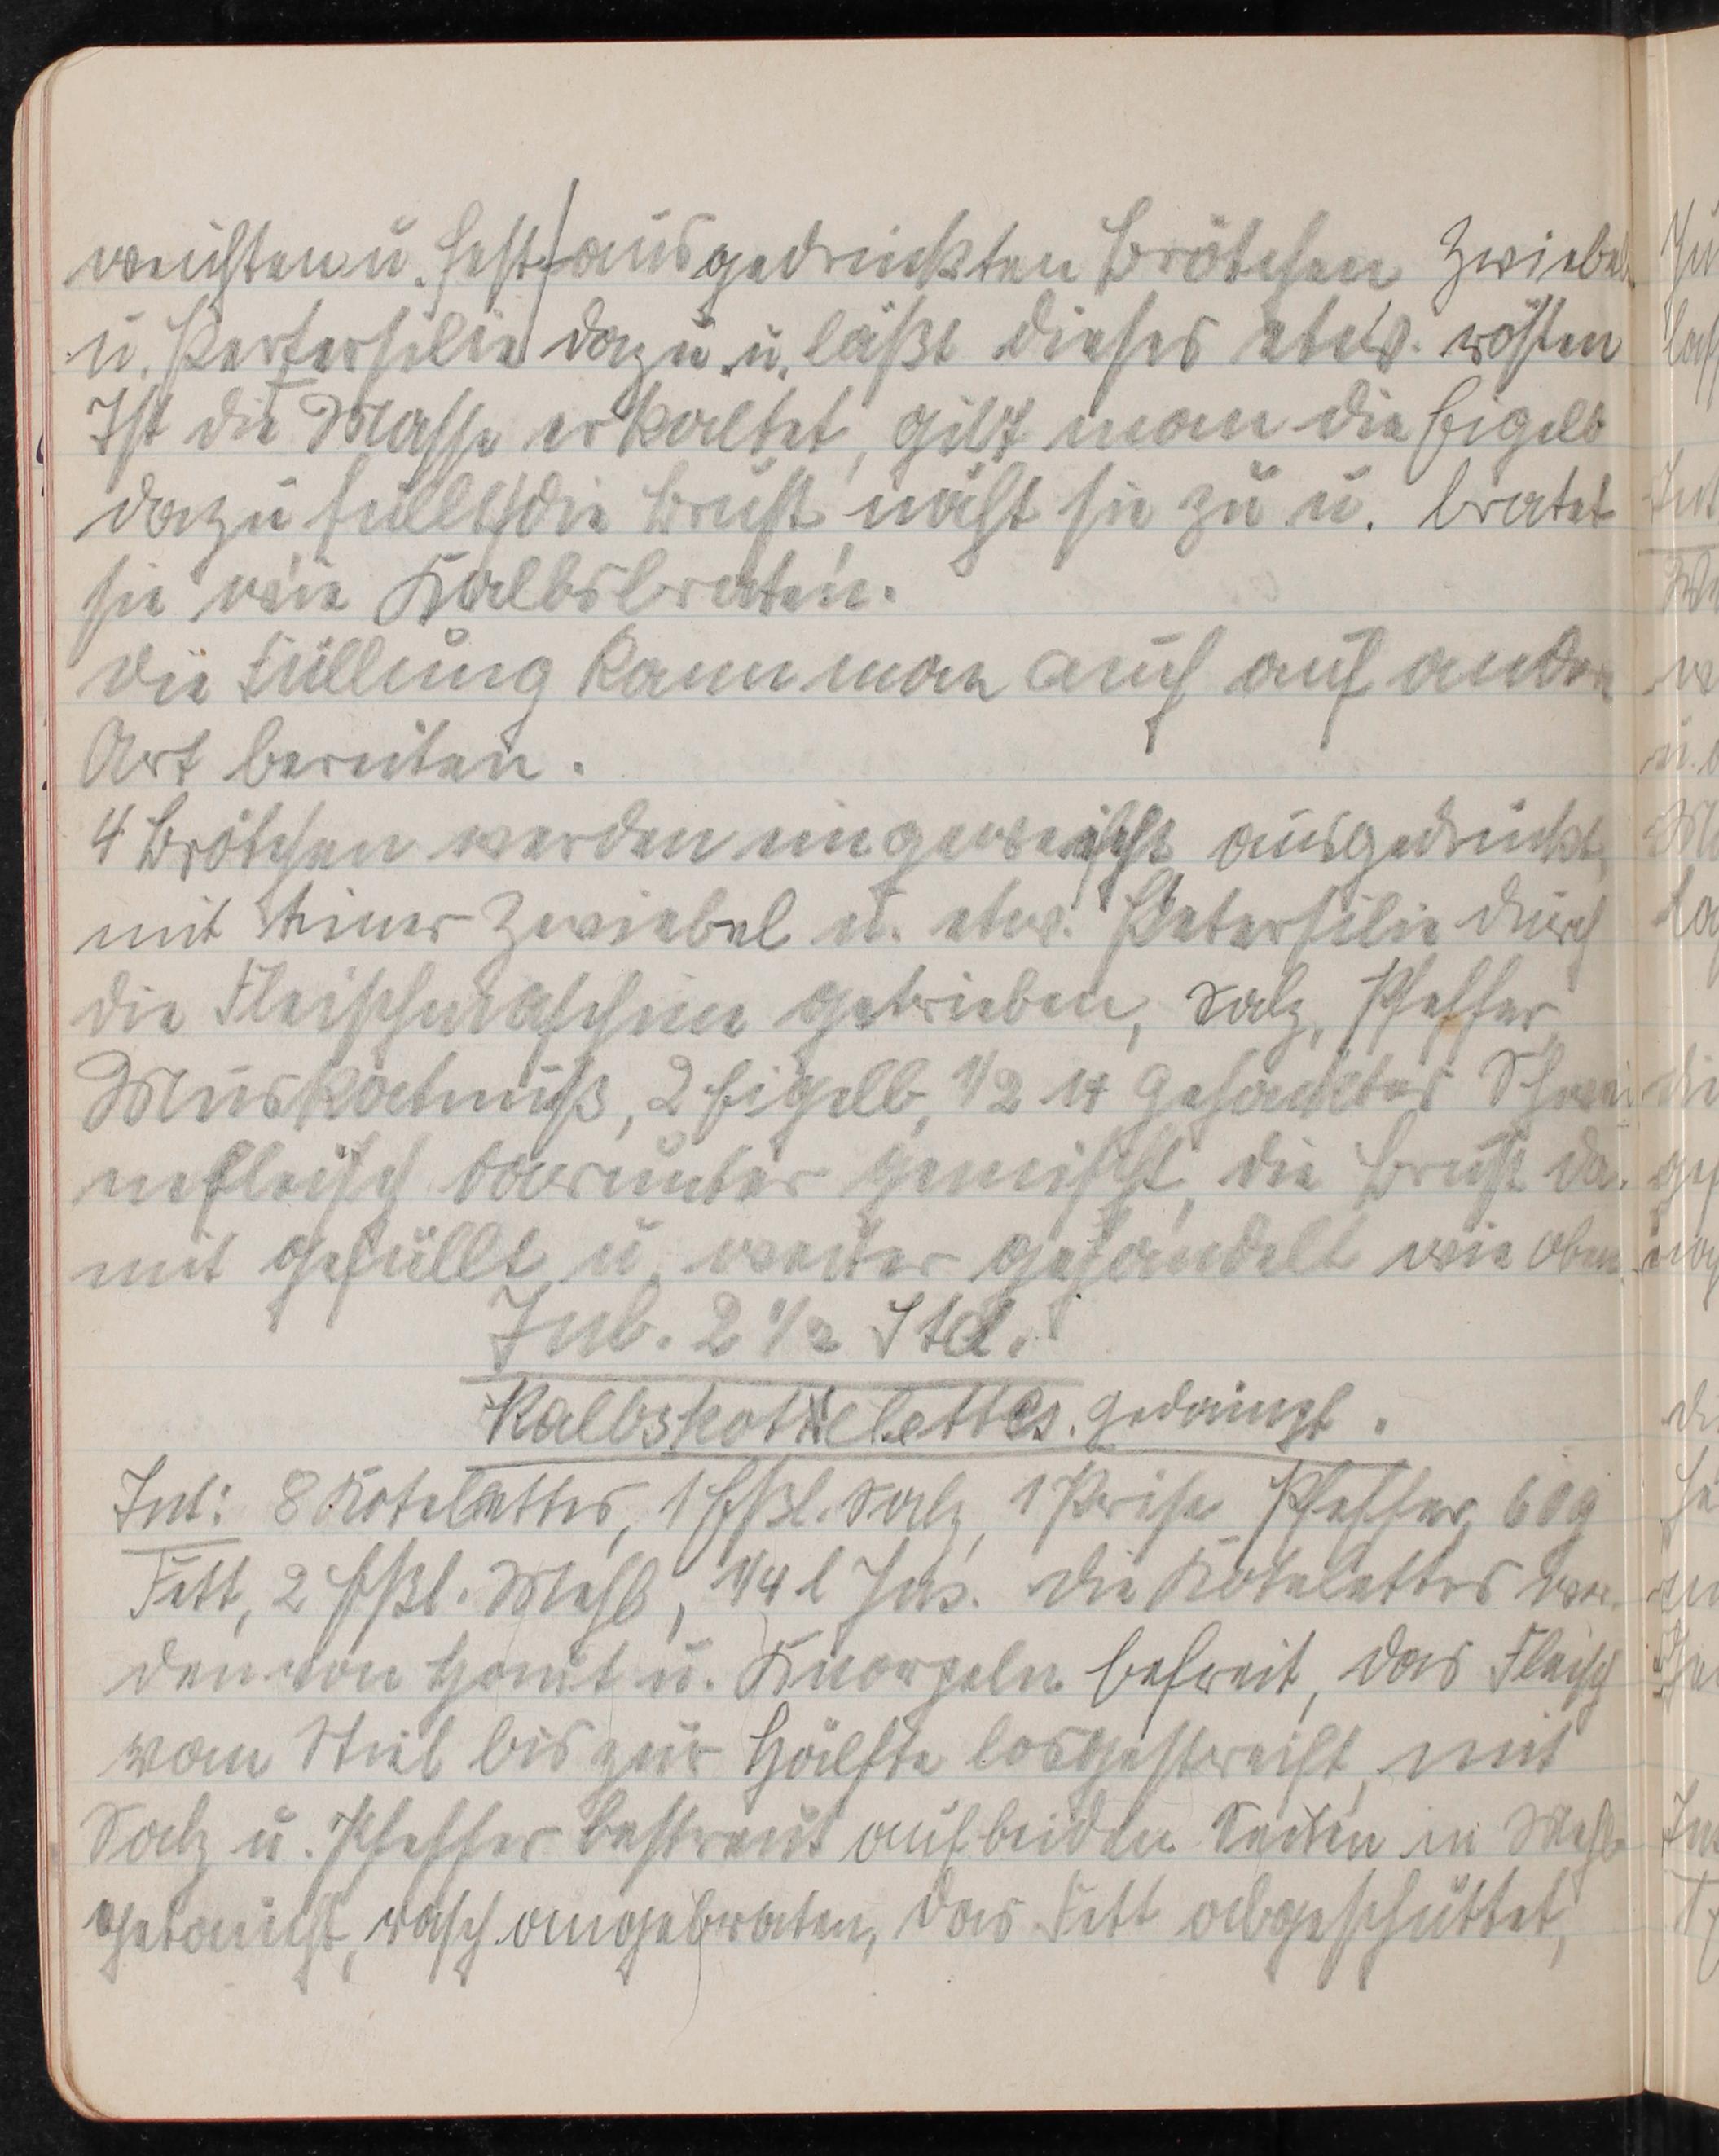 weichten u. fest ausgedrückten Brötchen Zwiebel
u. Pertersilie dazu u. läßt dieses etw. rösten
Ist die Masse erkaltet, gibt man die Eigelb
dazu füllt die Brust, näht sie zu u. bratet
sie wie Kalbsbraten.
Die Füllung kann man auch auf andre
Art bereiten.
4 Brötchen werden eingeweicht ausgedrückt,
mit einer Zwiebel u. etw. Petersilie durch
die Fleischmaschine getrieben, Salz, Pfeffer,
Muskatnuß, 2 Eigelb, 1/2 ℔ gehacktes Schwei
nefleisch darunter gemischt, die Brust da-
mit gefüllt u. weiter gehandelt wie oben.
Zub. 2 1/2 Std.
Kalbskottelettes. gedämpft.
Zut: 8 Kotelettes, 1 Eßl. Salz, 1 Prise Pfeffer, 60g
Fett, 2 Eßl. Mehl, 1/4 l Jus. Die Kotelettes wer-
den von Haut u. Knorpeln befreit, das Fleisch
vom Stiel bis zur Hälfte losgestreift, mit
Salz u. Pfeffer bestreut auf beiden Seiten in Mehl
getaucht, rasch angebraten, das Fett abgeschüttet,